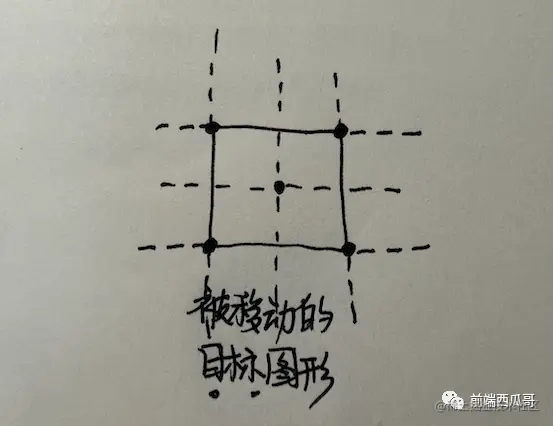 被移动的
目标图形
前端西瓜哥